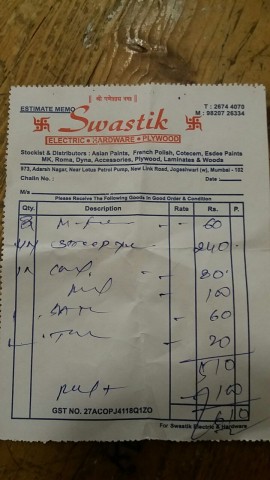 || श्री गणेशाय नमः ||
ESTIMATE MEMO
T : 2674 4070
M : 98207 26334
Swastik
ELECTRIC • HARDWARE • PLYWOOD
Stockist & Distributors : Asian Paints, French Polish, Cotecem, Esdee Paints
MK, Roma, Dyna, Accessories, Plywood, Laminates & Woods
973, Adarsh Nagar, Near Lotus Patrol Pump, New Link Road, Jogeshwari (w), Mumbai - 102
Challn No. : Date
M/s
Please Receive The Following Goods In Good Order & Condition
Qty. Description Rate Rs. P.
60
240
80
100
60
20
510
100
610
GST NO. 27ACOPJ4118Q1ZO
For Swastik Electric & Hardware